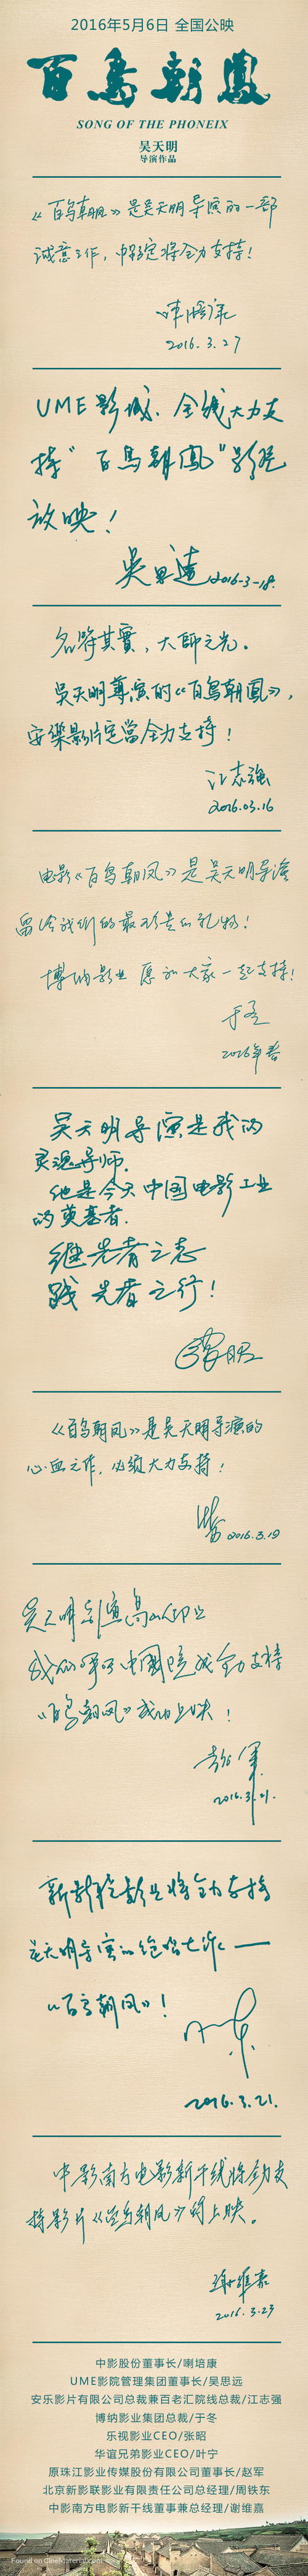 2016年5月6日 全国公映
百鸟朝凤
SONG OF THE PHONEIX
吴天明
导演作品
《百鸟朝凤》是吴天明导演的一部
诚意之作，中影定将全力支持！
2016.3.27
UME影城、全线大力支
持"百鸟朝鳳"影片
放映！
吴思遠 2016-3-18.
名符其實，大師之光。
吴天明導演的《百鸟朝鳳》，
安樂影片定當全力支持！
江志強
2016.03.16
电影《百鸟朝凤》是吴天明导演
留给我们的最珍贵的礼物！
博纳影业愿和大家一起支持！
于冬
2016年春
吴天明导演是我的
灵魂导师.
他是今天中国电影工业
的奠基者.
继先者之志
践先者之行！
《百鸟朝凤》是吴天明导演的
心血之作，必须大力支持！
2016.3.19
吴天明
中國院线全力支持
《百鸟朝凤》成功上映！
2016.3.21.
新影联影业将全力支持
吴天明导演的绝唱大作——
《百鸟朝凤》！
2016.3.21.
中影南方电影新干线将全力支
持影片《百鸟朝凤》的上映。
谢维嘉
2016.3.23
中影股份董事长/喇培康
UME影院管理集团董事长/吴思远
安乐影片有限公司总裁兼百老汇院线总裁/江志强
博纳影业集团总裁/于冬
乐视影业CEO/张昭
华谊兄弟影业CEO/叶宁
原珠江影业传媒股份有限公司董事长/赵军
北京新影联影业有限责任公司总经理/周铁东
中影南方电影新干线董事兼总经理/谢维嘉
Found on CineMaterial.com